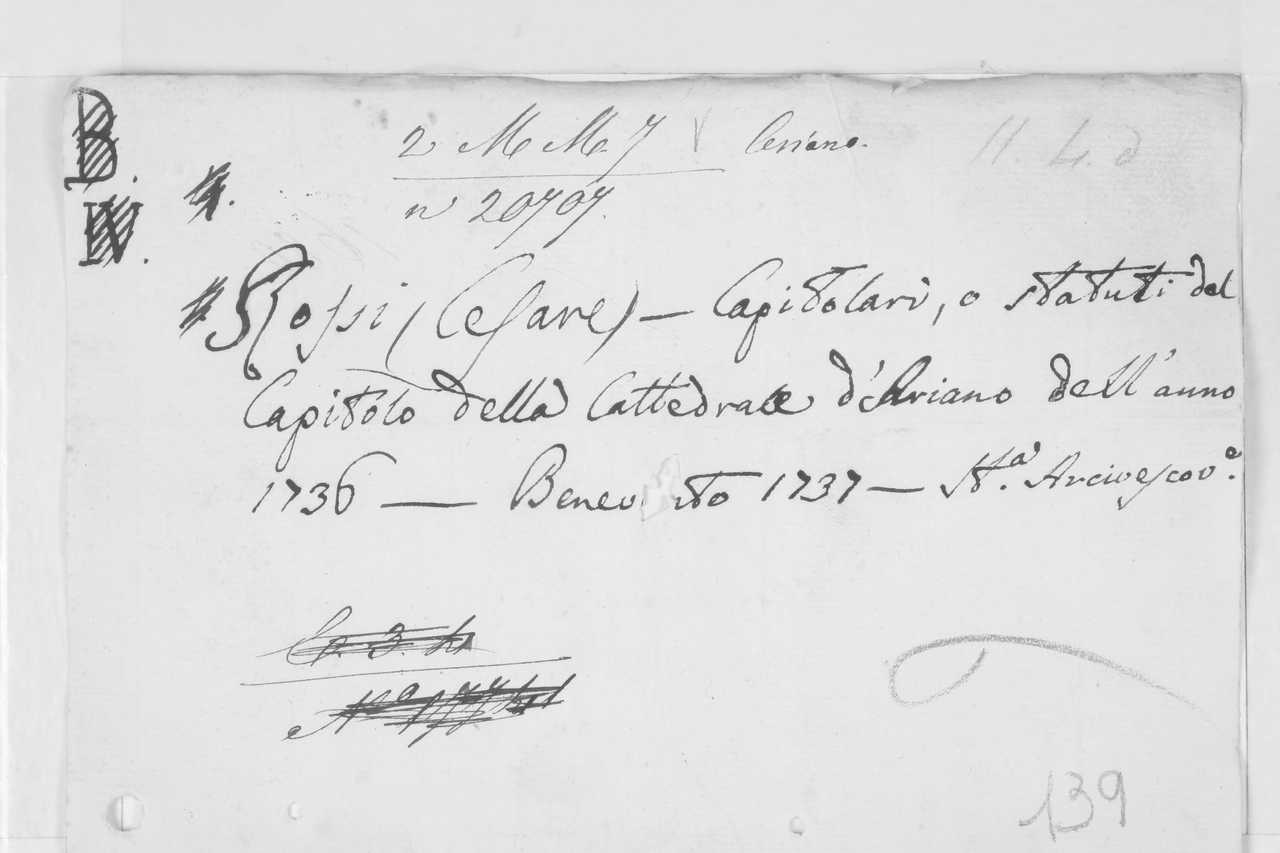 B.
IV.
2 M M. 7
n 20707.
11. 4. d
Rossi (Cesare) — Capitolari, o statuti del
Capitolo della Cattedrale d'Ariano dell'anno
1736 — Benev nto 1737 — St.a Arcivescov.e
139